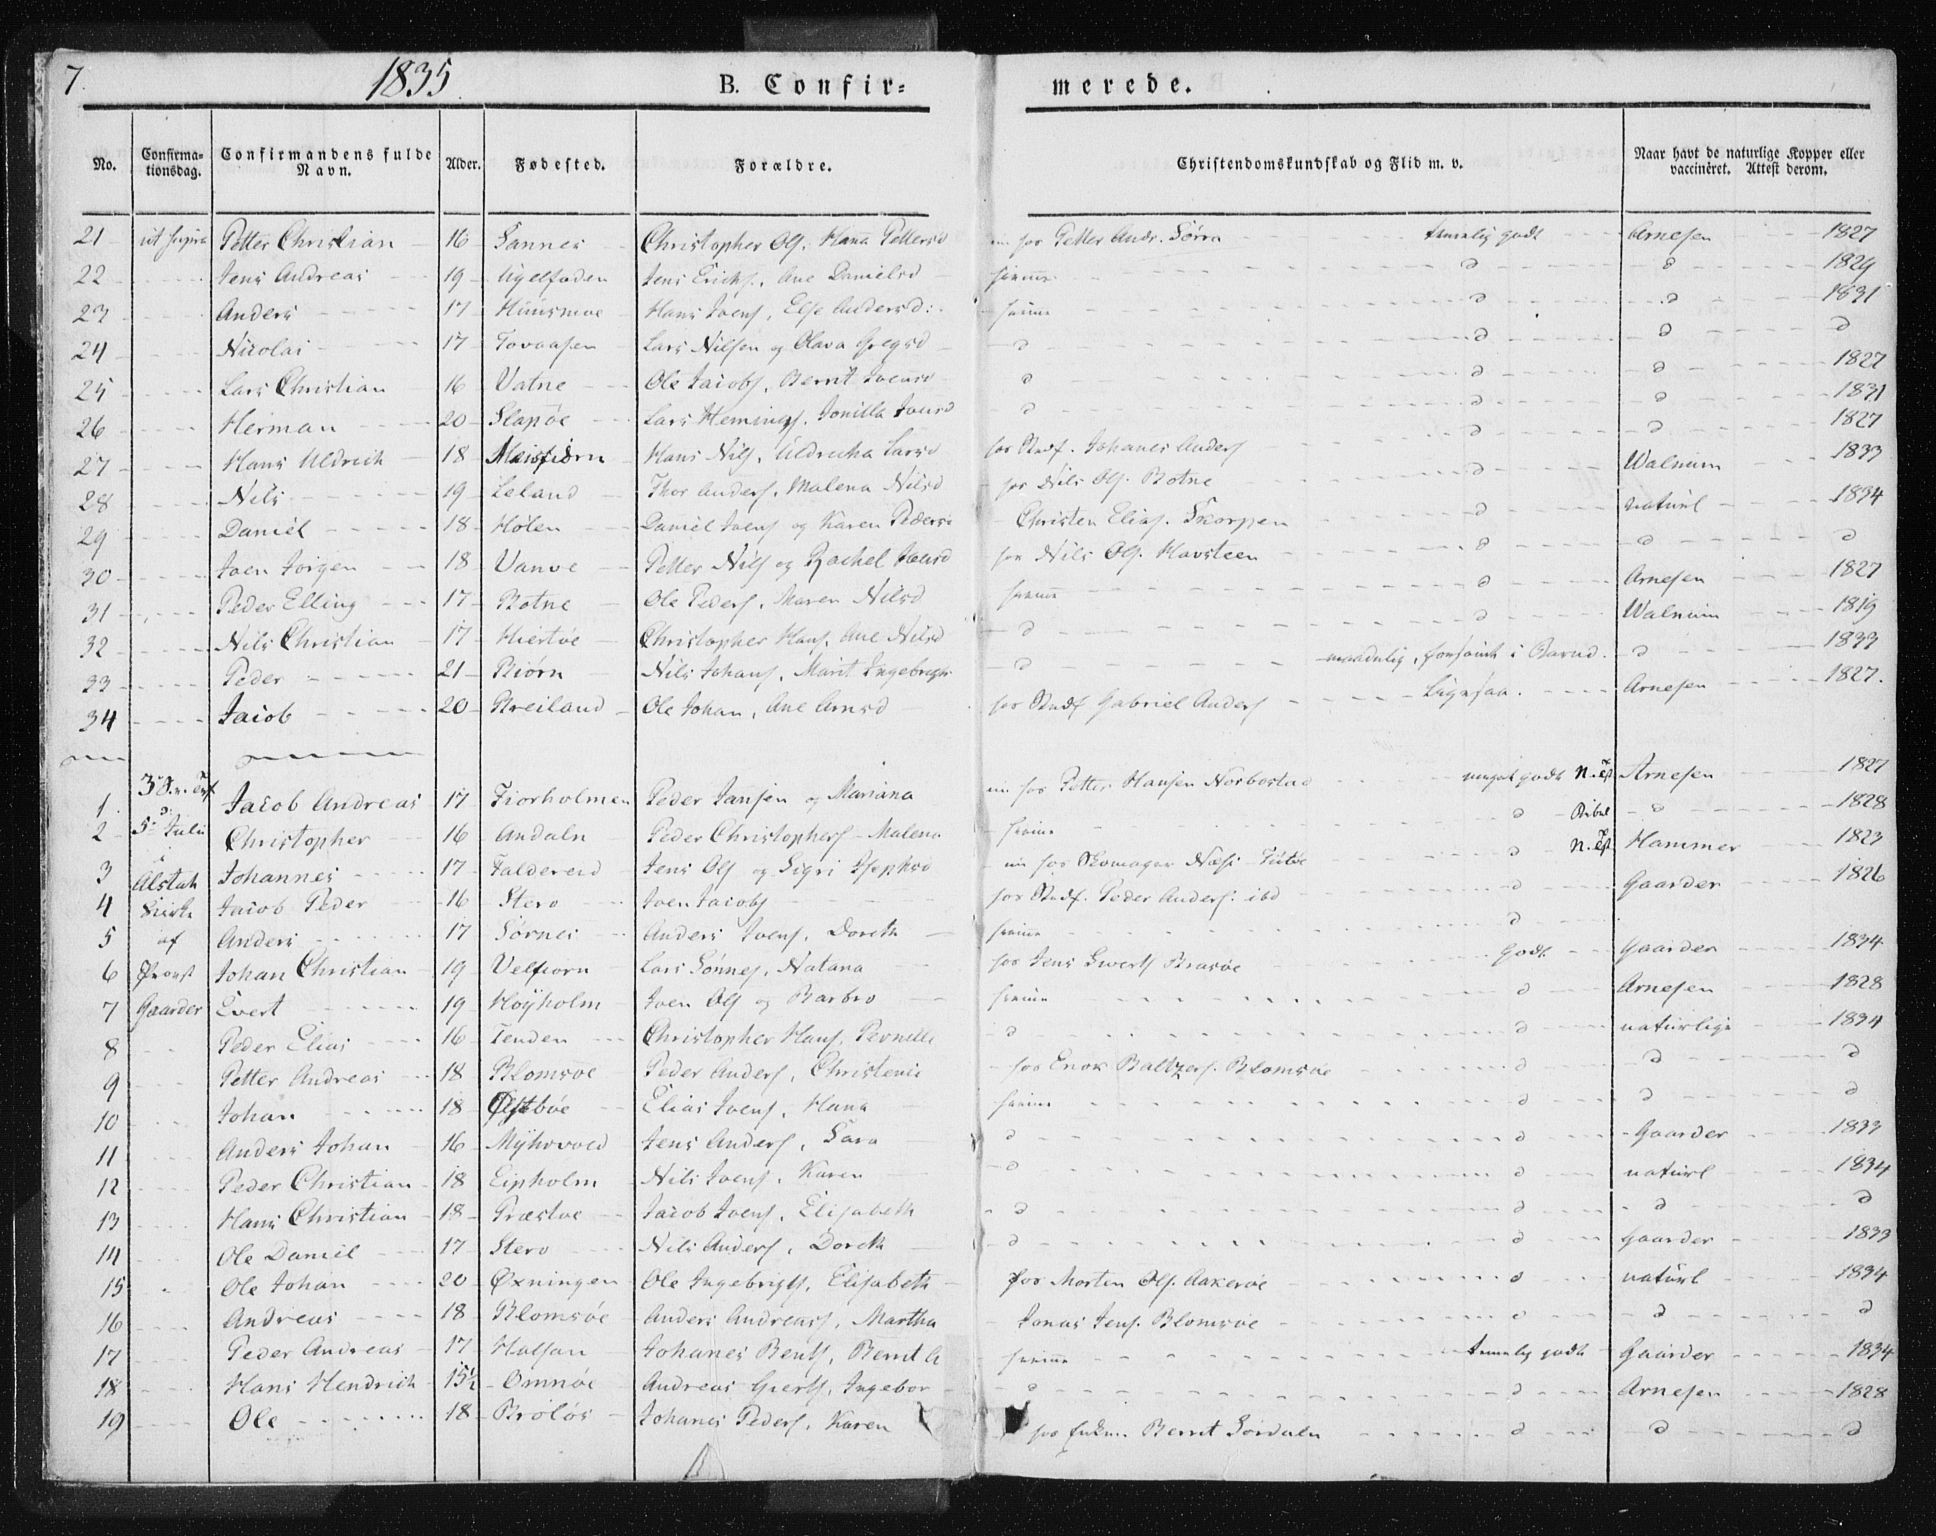 7. 1835. B. Confirmerede.
No. Confirmationsdag. Confirmandens fulde Navn. Alder. Fødested. Forældre. Christendomskundskab og Flid m. v. Naar havt de naturlige Kopper eller vaccinéret. Attest derom.
21 ut supra Petter Christian 16 Sannes Christopher Ols. Hana Pettersd nu hos Petter Andr. Sørra temelig godt Arnesen 1827
22 Jens Andreas 19 Jens Erichs. Ane Danielsd hiemme d d 1829
23 Anders 17 Huusmoe Hans Joens. Else Andersd: hiemme d d 1831
24 Nicolai 17 Tovaasen Lars Nilsen og Olava d d d d
25 Lars Christian 16 Vatne Ole Jacobs. Berrit Joensd d d d 1827
26 Herman 20 Slapøe Lars Hemings. Jonilla Joensd d d d 1831
27 Hans Uldrich 18 Meisfiorn Hans Nils. Uldricha Larsd hos Stedf. Johanes Anders d d 1827
28 Nils 19 Leland Thor Anders. Malena Nilsd hos Nils Ols. Botne d Walnum 1833
29 Daniel 18 Holen Daniel Joens og Karen Peders Christen Elias. Skorpen d naturl 1834
30 Joen Jørgen 18 Vanve Petter Nils og Rachel Joensd hos Nils Ols. Havsteen d d d
31 Peder Elling 17 Botne Ole Peders. Maren Nilsd hiemme d Arnesen 1827
32 Nils Christian 17 Hiertøe Christopher Hans. Ane Nilsd d d Walnum 1819
33 Peder 21 Biørn Nils Johans. Marit Ingebregts d maadelig, forsømt i Barnd. d 1833
34 Jacob 20 Breiland Ole Johan. Ane Arnsd hos Stedf Gabriel Anders Ligesaa. Arnesen 1827.
1 Jacob Andreas 17 Fiorholmen Peder Jansen og Mariana nu hos Petter Hansen Norbostad meget godt N. T. Arnesen 1827
2 5te Julii Christopher 16 Andaln Peder Christophers. Malena hiemme d Bibel d 1828
3 i Alstah Johannes 17 Faldereid Jens Ols og Sigri Josephsd nu hos Skomager d N. T. Hammer 1823
4 Kirke Jacob Peder 16 Stero Joen Jacobs hos Stedf. Peder Anders. ibd d Gaarder 1826
5 af Anders 17 Sørnes Anders Joens. Doreth hiemme d
6 Provst Johan Christian 19 Velfiorn Lars Sønnes. Natana hos Jens Brasøe Godt Gaarder 1834
7 Gaarder Evert 19 Høyholm Joen Ols og Barbro hiemme d Arnesen 1828
8 Peder Elias 16 Tenden Christopher Hans. Pernille d d naturlige 1834
9 Petter Andreas 18 Blomsøe Peder Anders. Christenie hos Enok Baltzers. Blomsøe d d d
10 Johan 18 Østbøe Elias Joens. Hana hiemme d d d
11 Anders Johan 16 Myhrvold Jens Anders. Sara d d Gaarder 1833
12 Peder Christian 18 Eipholm Nils Joens. Karen d d naturl 1834
13 Hans Christian 18 Præstøe Jacob Joens. Elisabeth d d d d
14 Ole Daniel 17 Stero Nils Anders. Doreth d d Gaarder 1833
15 Ole Johan 20 Øxningen Ole Ingebrigts. Elisabeth hos Morten Ols. Aakerøe d naturl 1834
16 Andreas 18 Blomsøe Anders Andreass. Martha Jonas Jens. Blomsøe d d d
17 Peder Andreas 17 Halsan Johanes Bents. Berrit hiemme temelig godt Gaarder 1834
18 Hans Hendrich 15½ Omnøe Andreas Gierts. Ingebor d d Arnesen 1828
19 Ole 18 Brøløs Johanes Peders. Karen hos Berrit Sørdaln d d d